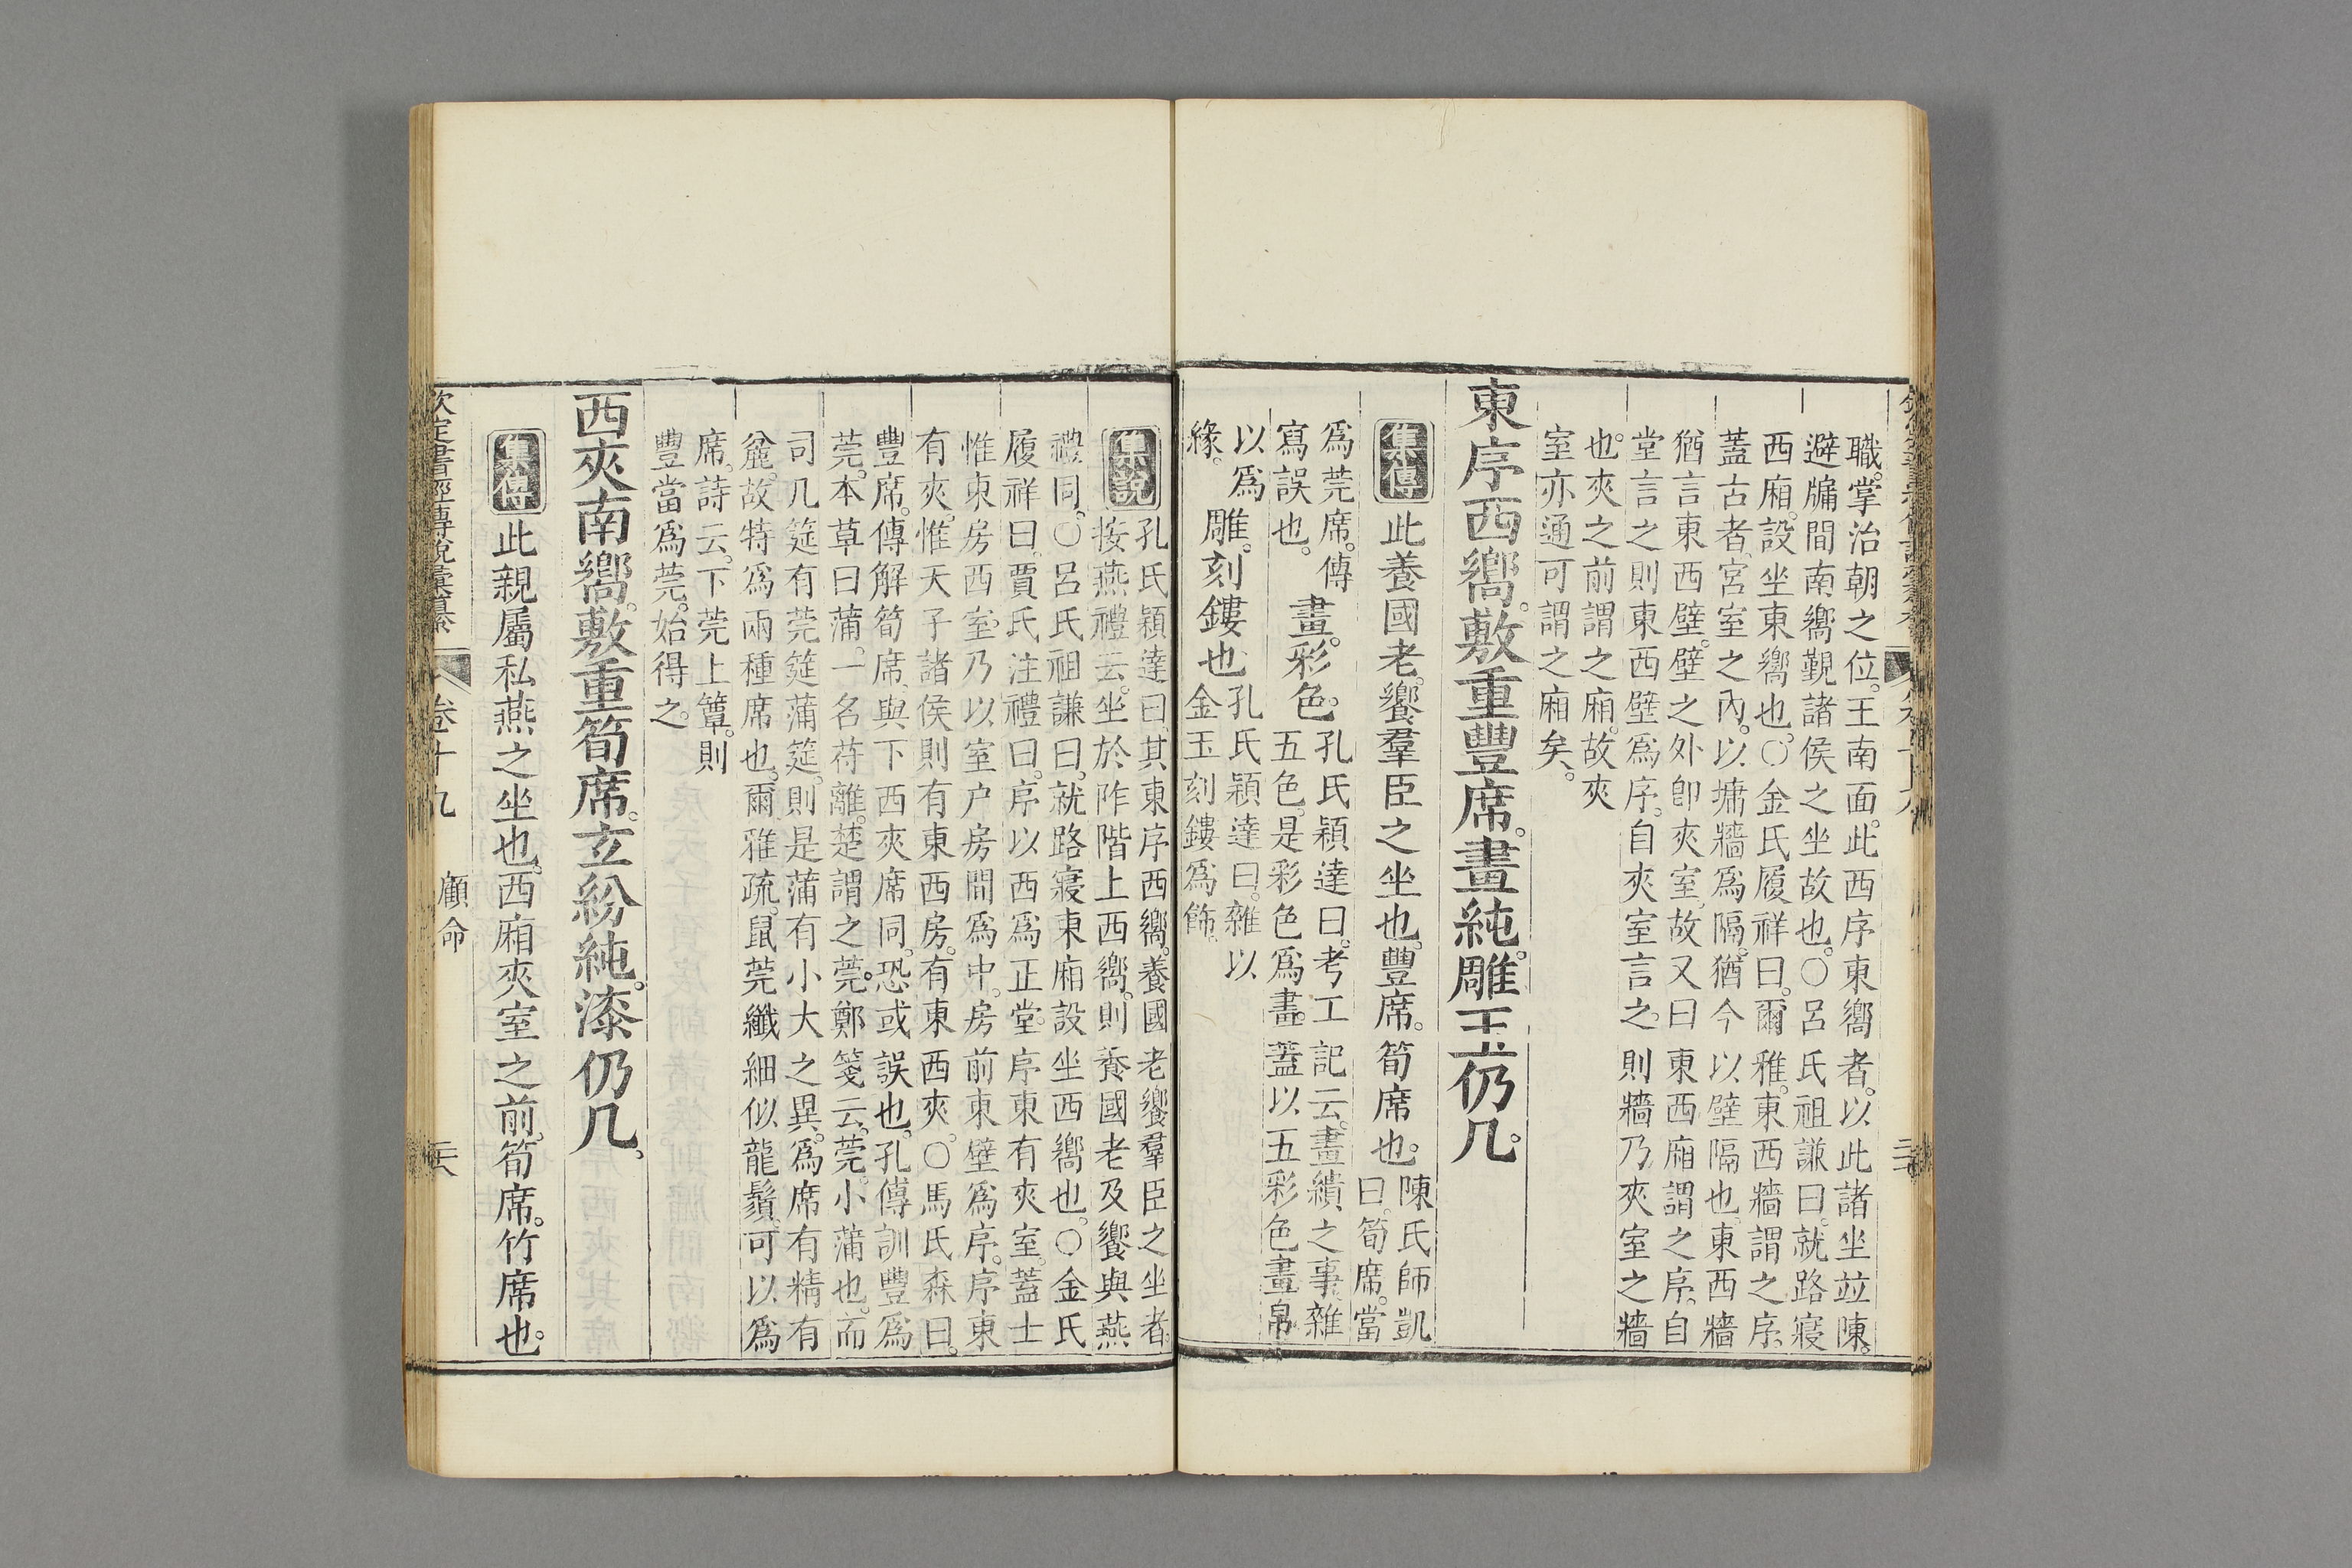 職。掌治朝之位。王南面。此西序東嚮者。以此諸坐竝陳。
避牖間南嚮覲諸侯之坐故也。○呂氏祖謙曰。就路寢
西廂。設坐東嚮也。○金氏履祥曰。爾雅。東西牆謂之序。
蓋古者。宮室之內。以墉牆爲隔。猶今以壁隔也。東西牆
猶言東西壁。壁之外卽夾室。故又曰東西廂謂之序。自
堂言之則東西壁爲序。自夾室言之。則牆乃夾室之牆
也。夾之前謂之廂。故夾
室亦通可謂之廂矣。
東序西嚮。敷重豐席。畫純。雕玉仍几。
集傳
此養國老。饗羣臣之坐也。豐席。筍席也。陳氏師凱
曰。筍席。當
爲莞席。傳
寫誤也。畫。彩色。孔氏穎達曰。考工記云。畫繢之事。雜
五色。是彩色爲畫。蓋以五彩色畫帛
以爲
緣。雕。刻鏤也。孔氏穎達曰。雜以
金玉刻鏤爲飾。
集說
孔氏穎達曰。其東序西嚮。養國老饗羣臣之坐者。
按燕禮云。坐於阼階上西嚮。則養國老及饗與燕
禮同。○呂氏祖謙曰。就路寢東廂設坐西嚮也。○金氏
履祥曰。賈氏注禮曰。序以西爲正堂。序東有夾室。蓋士
惟東房西室。乃以室户房間爲中。房前東壁爲序。序東
有夾。惟天子諸侯則有東西房。有東西夾。○馬氏森曰。
豐席。傳解筍席。與下西夾席同。恐或誤也。孔傳訓豐爲
莞。本草曰蒲。一名苻離。楚謂之莞。鄭箋云。莞。小蒲也。而
司几筵有莞筵蒲筵。則是蒲有小大之異。爲席有精有
麄。故特爲兩種席也。爾雅疏。鼠莞纖細似龍鬚。可以爲
席。詩云。下莞上簟。則
豐當爲莞。始得之。
西夾南嚮。敷重筍席。玄紛純。漆仍几。
集傳
此親屬私燕之坐也。西廂夾室之前。筍席。竹席也。
欽定書經傳說彙纂
卷十九
顧命
三六